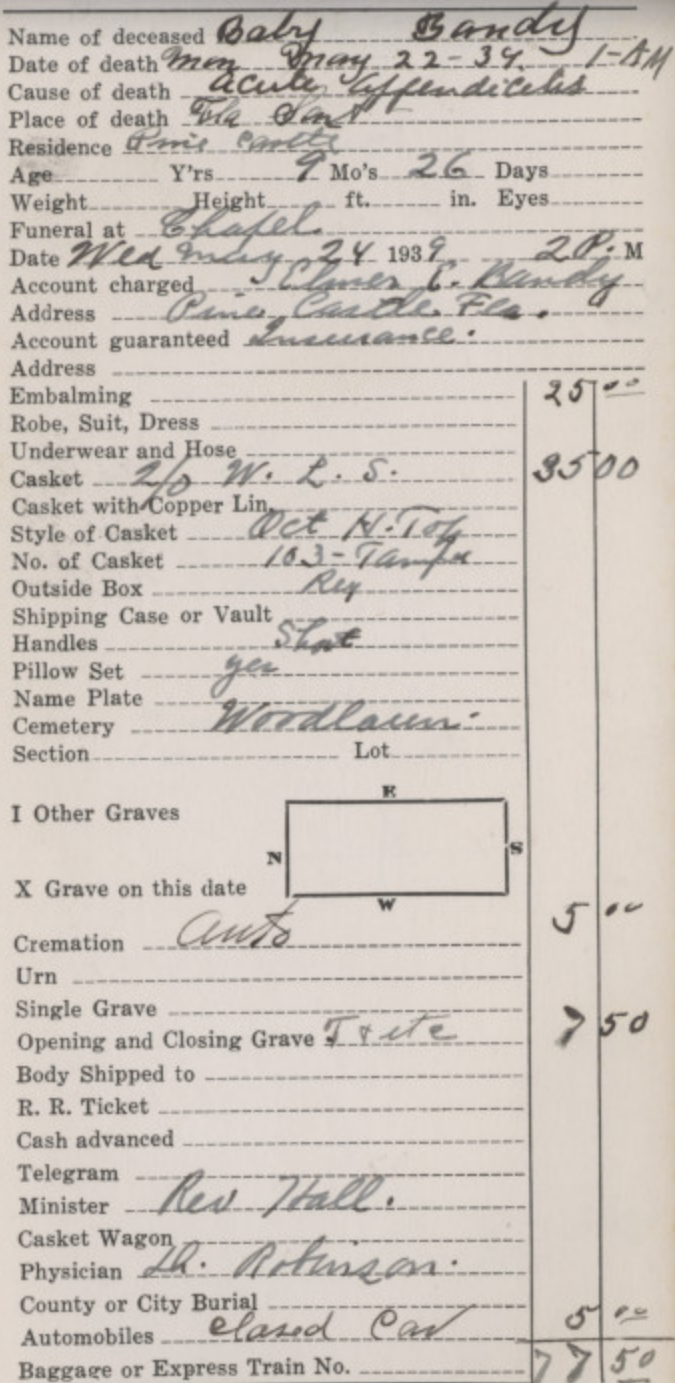 Name of deceased Baby Bandy
Date of death Mon May 22-39. 1-AM
Cause of death acute appendicitis
Place of death Fla Sant
Residence Pine Castle
Age Y'rs 9 Mo's 26 Days
Weight Height ft. in. Eyes
Funeral at Chapel
Date Wed May 24 1939 2 P. M
Account charged Elmer C. Bandy
Address Pine Castle, Fla.
Account guaranteed Insurance.
Address
Embalming 25 00
Robe, Suit, Dress
Underwear and Hose
Casket 2/0 W. L. S. 35 00
Casket with Copper Lin.
Style of Casket Oct H. Top
No. of Casket 103-Tampa
Outside Box Reg
Shipping Case or Vault
Handles Short
Pillow Set yes
Name Plate
Cemetery Woodlawn.
Section Lot
E
I Other Graves
N S
X Grave on this date
W
5 00
Cremation Auto
Urn
Single Grave
Opening and Closing Grave T & etc 7 50
Body Shipped to
R. R. Ticket
Cash advanced
Telegram
Minister Rev Hall.
Casket Wagon
Physician Dr. Robinson.
County or City Burial
Automobiles Closed Car 5 00
Baggage or Express Train No. 77 50